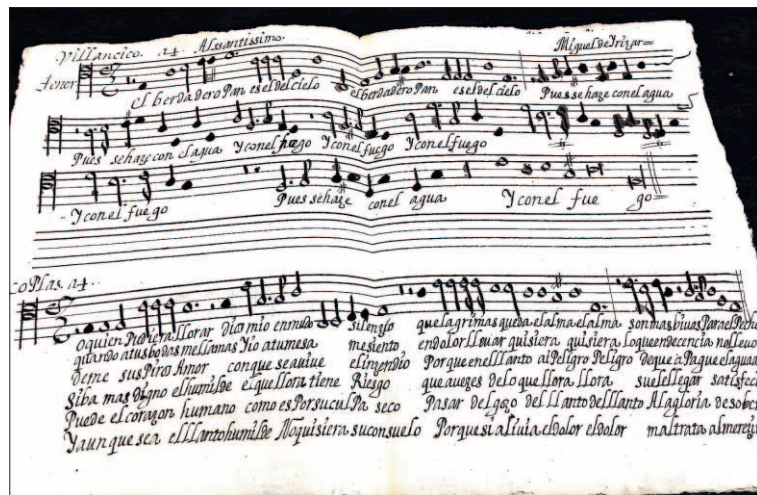 Villancico. a4. Alssantissimo. Miguel de Yrizar =
Tenor
el berdadero Pan es el del cielo el berdadero Pan es el del cielo Pues se haze con el agua
Pues se haze con el agua Y con el fuego Y con el fuego Y con el fuego
- Y con el fuego Pues se haze con el agua Y con el fue go =
coPlas. a4.
o quien Pudiera llorar dio mio en mudo silenzio que lagrimas queda el alma el alma son mas bivas Para el Pecho
quando a tus bodas me llamas Y io a tu mesa me siento en dolor quisiera quisiera lo que en decencia no llevo
deme susPiro Amor con que se avive el inzendio Porque en el llanto ai Peligro Peligro de que a Pague el agua
siba mas digno el humilde e que llora tiene Riesgo que a vezes de lo que llora llora suele llegar satisfeci
Puede el corazon humano como es Por su culPa seco Pasar del gozo del llanto del llanto A la gloria de
Y aun que sea el llanto humilde No quisiera su consuelo Porque si alivia el dolor el dolor maltrata al